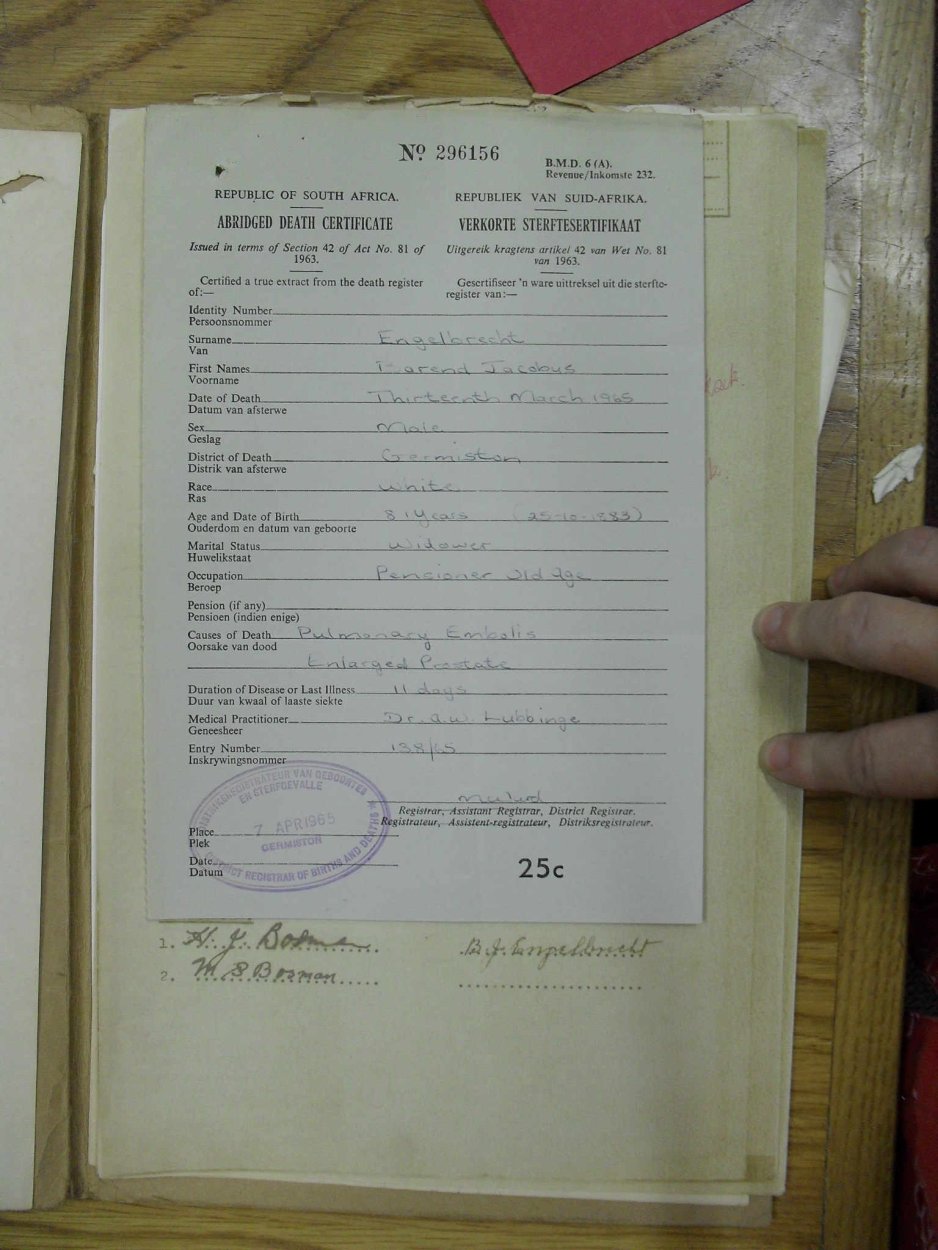 No 296156
B.M.D. 6 (A).
Revenue/Inkomste 232.
REPUBLIC OF SOUTH AFRICA.
ABRIDGED DEATH CERTIFICATE
Issued in terms of Section 42 of Act No. 81 of
1963.
Certified a true extract from the death register
of:—
REPUBLIEK VAN SUID-AFRIKA.
VERKORTE STERFTESERTIFIKAAT
Uitgereik kragtens artikel 42 van Wet No. 81
van 1963.
Gesertifiseer 'n ware uittreksel uit die sterfte-
register van:—
Identity Number
Persoonsnommer
Surname Engelbrecht
Van
First Names Barend Jacobus
Voorname
Date of Death Thirteenth March 1965
Datum van afsterwe
Sex Male
Geslag
District of Death Germiston
Distrik van afsterwe
Race White
Ras
Age and Date of Birth 81 years (25-10-1883)
Ouderdom en datum van geboorte
Marital Status Widower
Huwelikstaat
Occupation Pensioner Old Age
Beroep
Pension (if any)
Pensioen (indien enige)
Causes of Death Pulmonary Embolis
Oorsake van dood
Enlarged Prostate
Duration of Disease or Last Illness 11 days
Duur van kwaal of laaste siekte
Medical Practitioner Dr. A.W. Lubbinge
Geneesheer
Entry Number 138/65
Inskrywingsnommer
Registrar, Assistant Registrar, District Registrar.
Registrateur, Assistent-registrateur, Distriksregistrateur.
DISTRIKSREGISTRATEUR VAN GEBOORTES
EN STERFGEVALLE
7 APR 1965
GERMISTON
DISTRICT REGISTRAR OF BIRTHS AND DEATHS
Place
Plek
Date
Datum
25c
1. H. J. Bosman
B. J. Engelbrecht
2. M S Bosman